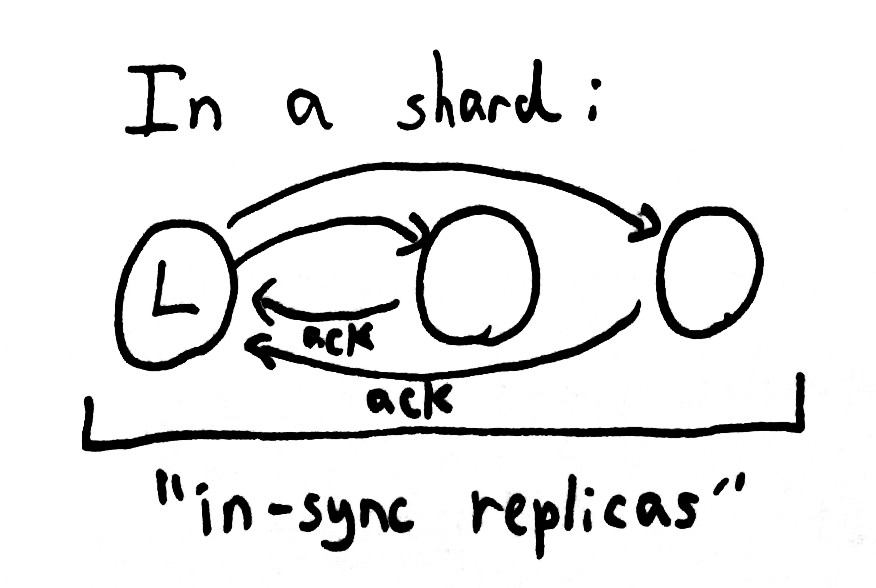 In a shard:
L
ack
ack
"in-sync replicas"